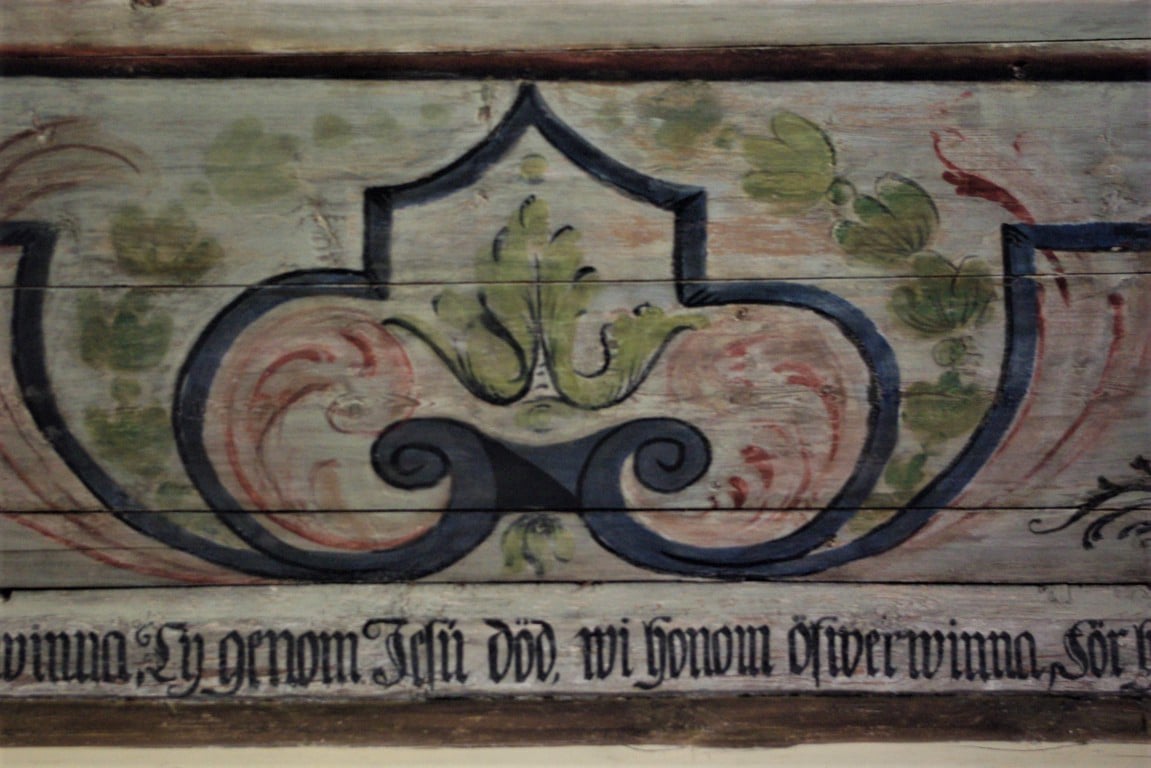 winna, Ty genom Jesu död, wi honom öfwerwinna, För h